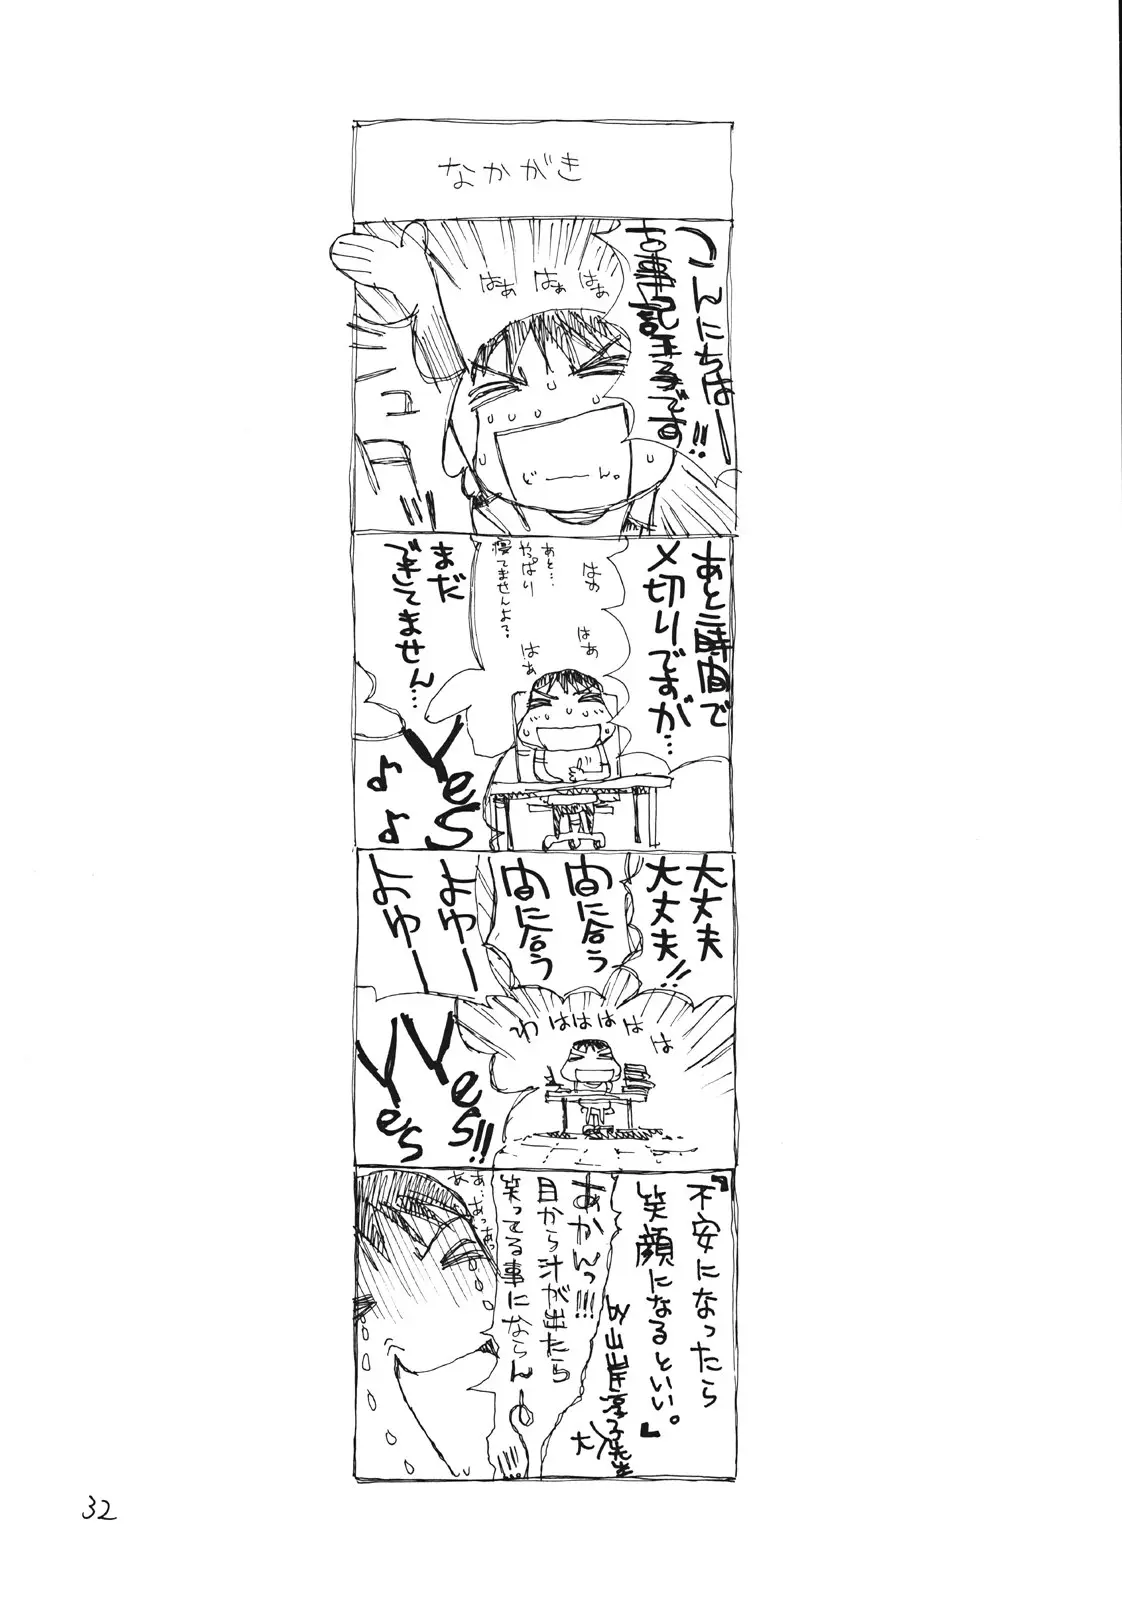 なかがき
こんにちはー!!
です
はぁ
はぁ
はぁ
じーーん。
あと三時間で
〆切りですが…
はぁ
はぁ
はぁ
あと…
やっぱり
寝てませんよ?
まだ
できてません…
Yes
大丈夫
大丈夫!!
間に合う
間に合う
よゆー
よゆー
わははははは
Yes!!
Yes
『不安になったら
笑顔になるといい。』
by山岸涼子先生
あかんっ!!!
目から汁が出たら
笑ってる事にならんー
32